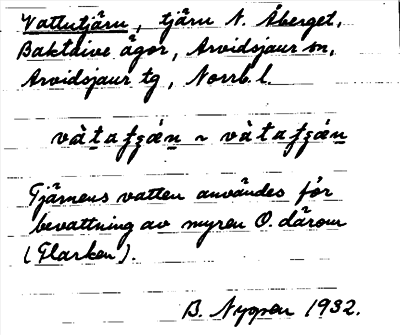 Vattutjärn, tjärn N. Åberget,
Baktsive ägor, Arvidsjaur sn,
Arvidsjaur tg, Norrb. l.
Tjärnens vatten användes för
bevattning av myren O. därom
(Flarken).
B. Nygren 1932.